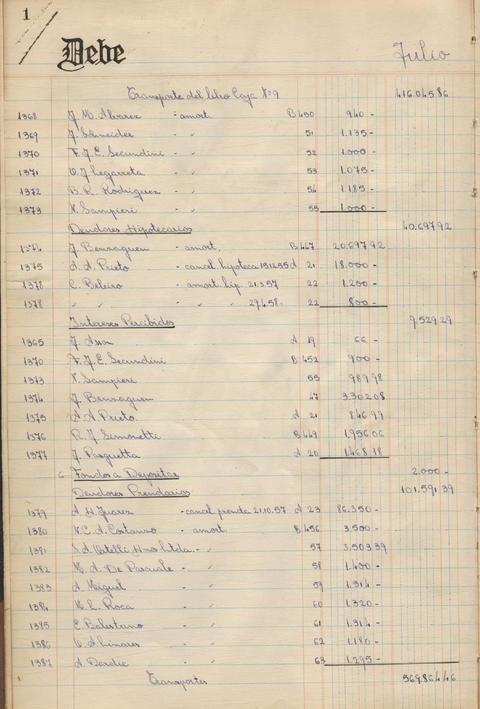 1
Debe Julio
Transporte del libro Caja Nº 9 416.045.86
1368 J. M. Alvarez - amort B 450 940 -
1369 J. Schneider - " 51 1.135 -
1370 F. J. E. Secundini - " 52 1.000 -
1371 O. J. Legarreta - " 53 1.075 -
1372 B. R. Rodriguez - " 54 1.185 -
1373 N. Sampieri - " 55 1.000 -
Deudores Hipotecarios 40.697.92
1374 J. Benzaguen - amort. B 447 20.697.92
1375 A. A. Prieto - cancel. hipoteca 151255 A 21 18.000 -
1378 C. Beleiro - amort hip. 21.3.57 22 1.200 -
1378 " " - " " 29.4.58 - 22 800 -
Intereses Percibidos 9.529.29
1365 J. A 19 66 -
1370 F. J. E. Secundini B 452 900 -
1373 N. Sampieri 55 989.98
1374 J. Benzaguen 47 3.302.08
1375 A. A. Prieto A 21 846.99
1376 R. J. Simonetti B 449 1.956.06
1377 J. A 20 1.468.18
Fondos a Depositar 2.000 -
Deudores Prendarios 101.591.39
1379 A. H. Juarez - cancel prenda 21.10.57 A 23 86.350 -
1380 N. C. A. Costanzo - amort B 456 3.500 -
1381 Hno Ltda. - " 57 3.503.39
1382 M. A. De Pascuale - " 58 1.400 -
1383 A. Miguel - " 59 1.314 -
1384 M. L. Roca - " 60 1.320 -
1385 C. Balestrino - " 61 1.314 -
1386 O. A. Linares - " 62 1.180 -
1387 A. Dardic - " 63 1.295 -
Transportes 569.864.46